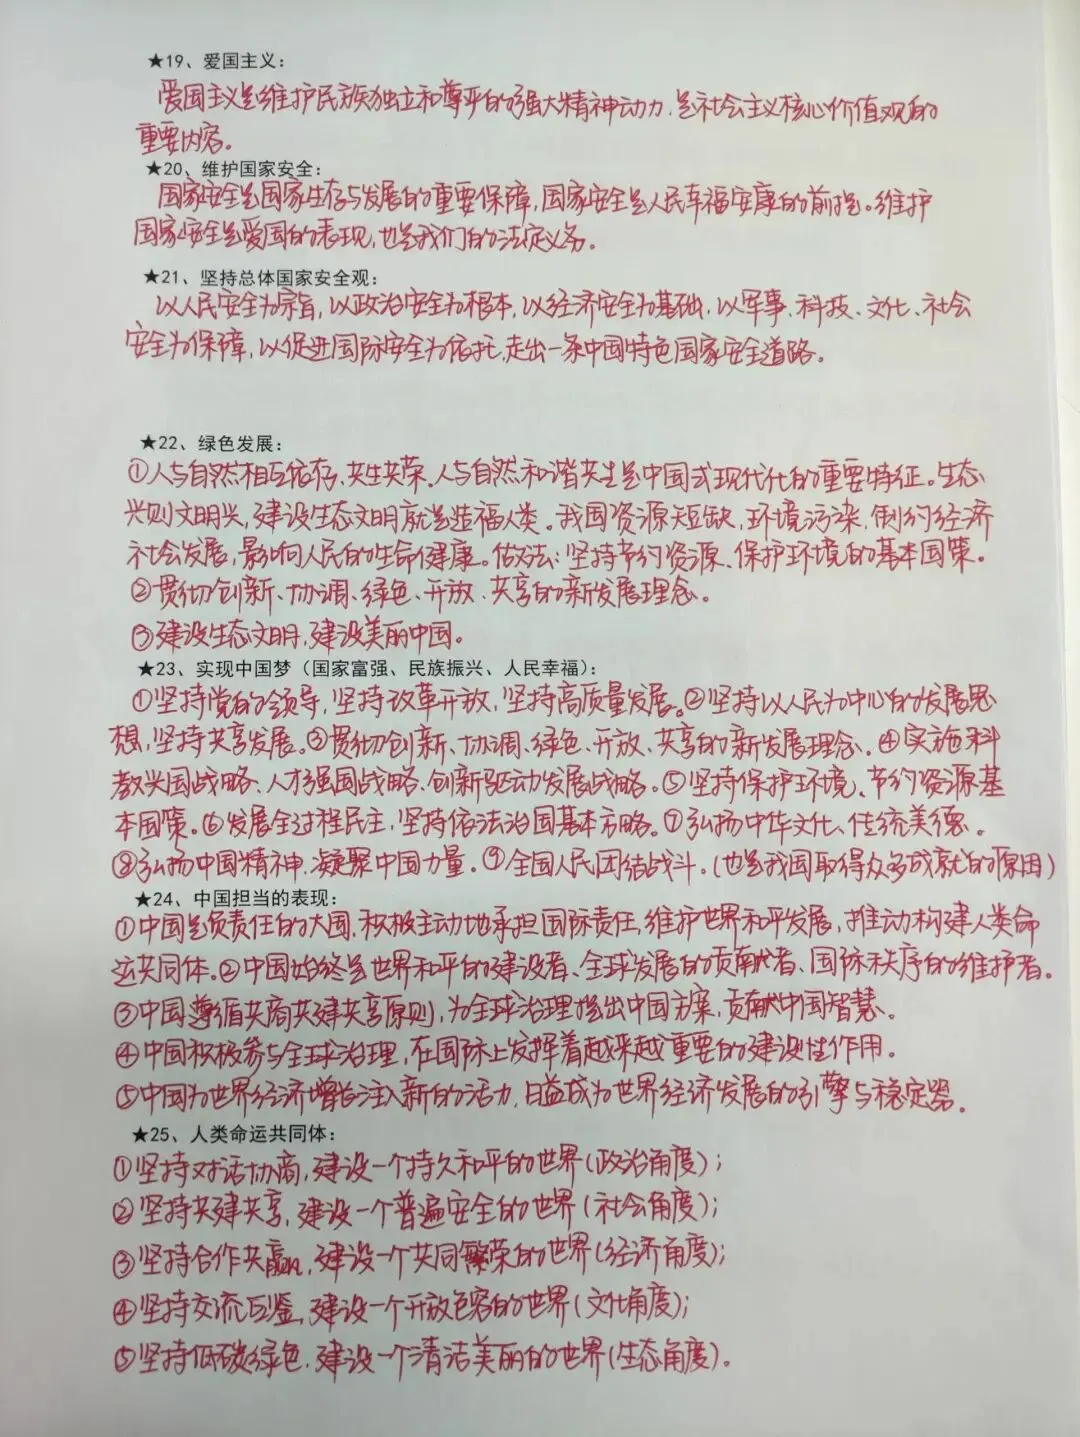 ★19、爱国主义：
爱国主义是维护民族独立和尊严的强大精神动力，是社会主义核心价值观的
重要内容。
★20、维护国家安全：
国家安全是国家生存与发展的重要保障，国家安全是人民幸福安康的前提。维护
国家安全是爱国的表现，也是我们的法定义务。
★21、坚持总体国家安全观：
以人民安全为宗旨，以政治安全为根本，以经济安全为基础，以军事、科技、文化、社会
安全为保障，以促进国际安全为依托，走出一条中国特色国家安全道路。
★22、绿色发展：
①人与自然相互依存、共生共荣。人与自然和谐共生是中国式现代化的重要特征。生态
兴则文明兴，建设生态文明就是造福人类。我国资源短缺，环境污染，制约经济
社会发展，影响人民的生命健康。做法：坚持节约资源、保护环境的基本国策。
②贯彻创新、协调、绿色、开放、共享的新发展理念。
③建设生态文明，建设美丽中国。
★23、实现中国梦（国家富强、民族振兴、人民幸福）：
①坚持党的领导，坚持改革开放，坚持高质量发展。②坚持以人民为中心的发展思
想，坚持共享发展。③贯彻创新、协调、绿色、开放、共享的新发展理念。④实施科
教兴国战略、人才强国战略、创新驱动发展战略。⑤坚持保护环境、节约资源基
本国策。⑥发展全过程民主，坚持依法治国基本方略。⑦弘扬中华文化、传统美德。
⑧弘扬中国精神，凝聚中国力量。⑨全国人民团结战斗。（也是我国取得众多成就的原因）
★24、中国担当的表现：
①中国是负责任的大国，积极主动地承担国际责任，维护世界和平发展，推动构建人类命
运共同体。②中国始终是世界和平的建设者、全球发展的贡献者、国际秩序的维护者。
③中国遵循共商共建共享原则，为全球治理提出中国方案，贡献中国智慧。
④中国积极参与全球治理，在国际上发挥着越来越重要的建设性作用。
⑤中国为世界经济增长注入新的活力，日益成为世界经济发展的引擎与稳定器。
★25、人类命运共同体：
①坚持对话协商，建设一个持久和平的世界（政治角度）；
②坚持共建共享，建设一个普遍安全的世界（社会角度）；
③坚持合作共赢，建设一个共同繁荣的世界（经济角度）；
④坚持交流互鉴，建设一个开放包容的世界（文化角度）；
⑤坚持低碳绿色，建设一个清洁美丽的世界（生态角度）。